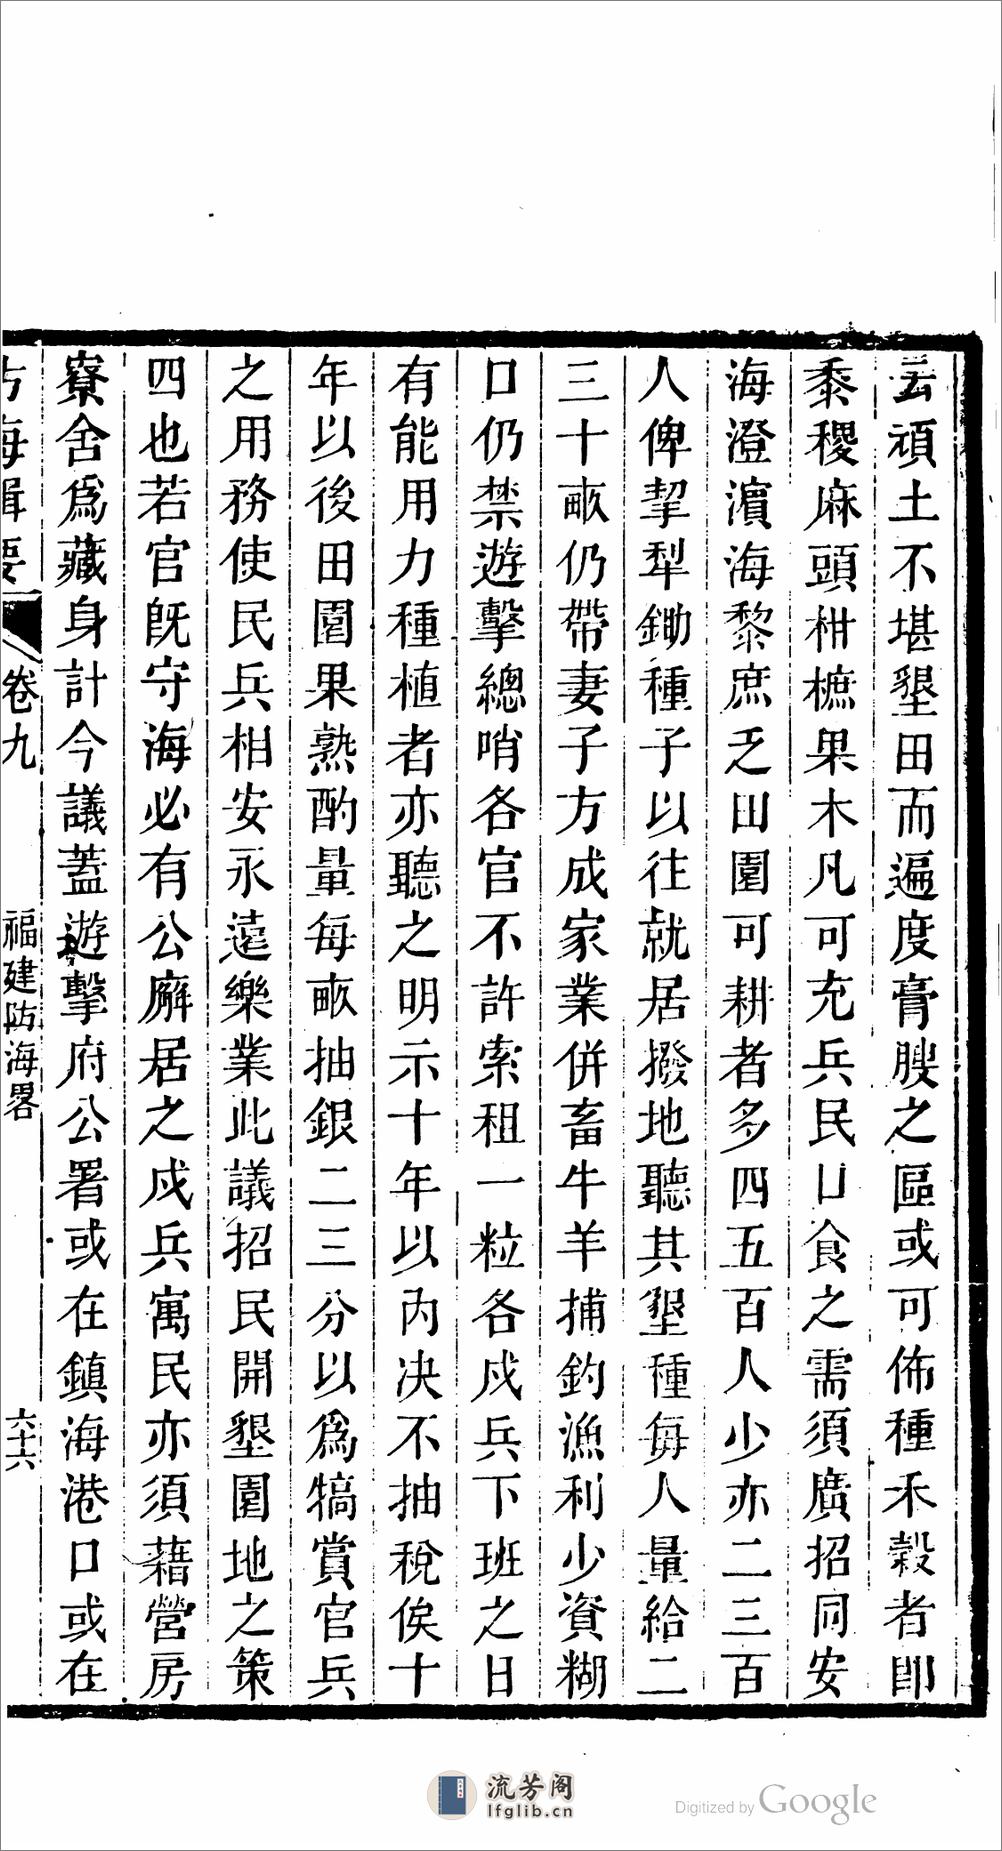 云頑土不堪墾田而遍度膏腴之區或可佈種禾穀者卽
黍稷麻頭柑樜果木凡可充兵民口食之需須廣招同安
海澄濵海黎庶乏田園可耕者多四五百人少亦二三百
人俾挈犁鋤種子以往就居撥地聽其墾種每人量給二
三十畞仍帶妻子方成家業併畜牛羊捕釣漁利少資糊
口仍禁遊擊總哨各官不許索租一粒各戍兵下班之日
有能用力種植者亦聽之明示十年以內决不抽稅俟十
年以後田園果熟酌量每畞抽銀二三分以爲犒賞官兵
之用務使民兵相安永遠樂業此議招民開墾園地之策
四也若官旣守海必有公廨居之戍兵寓民亦須藉營房
寮舍爲藏身計今議蓋遊擊府公署或在鎮海港口或在
海輯要
卷九
福建防海畧
六十六
流芳阁
lfglib.cn
Digitized by Google